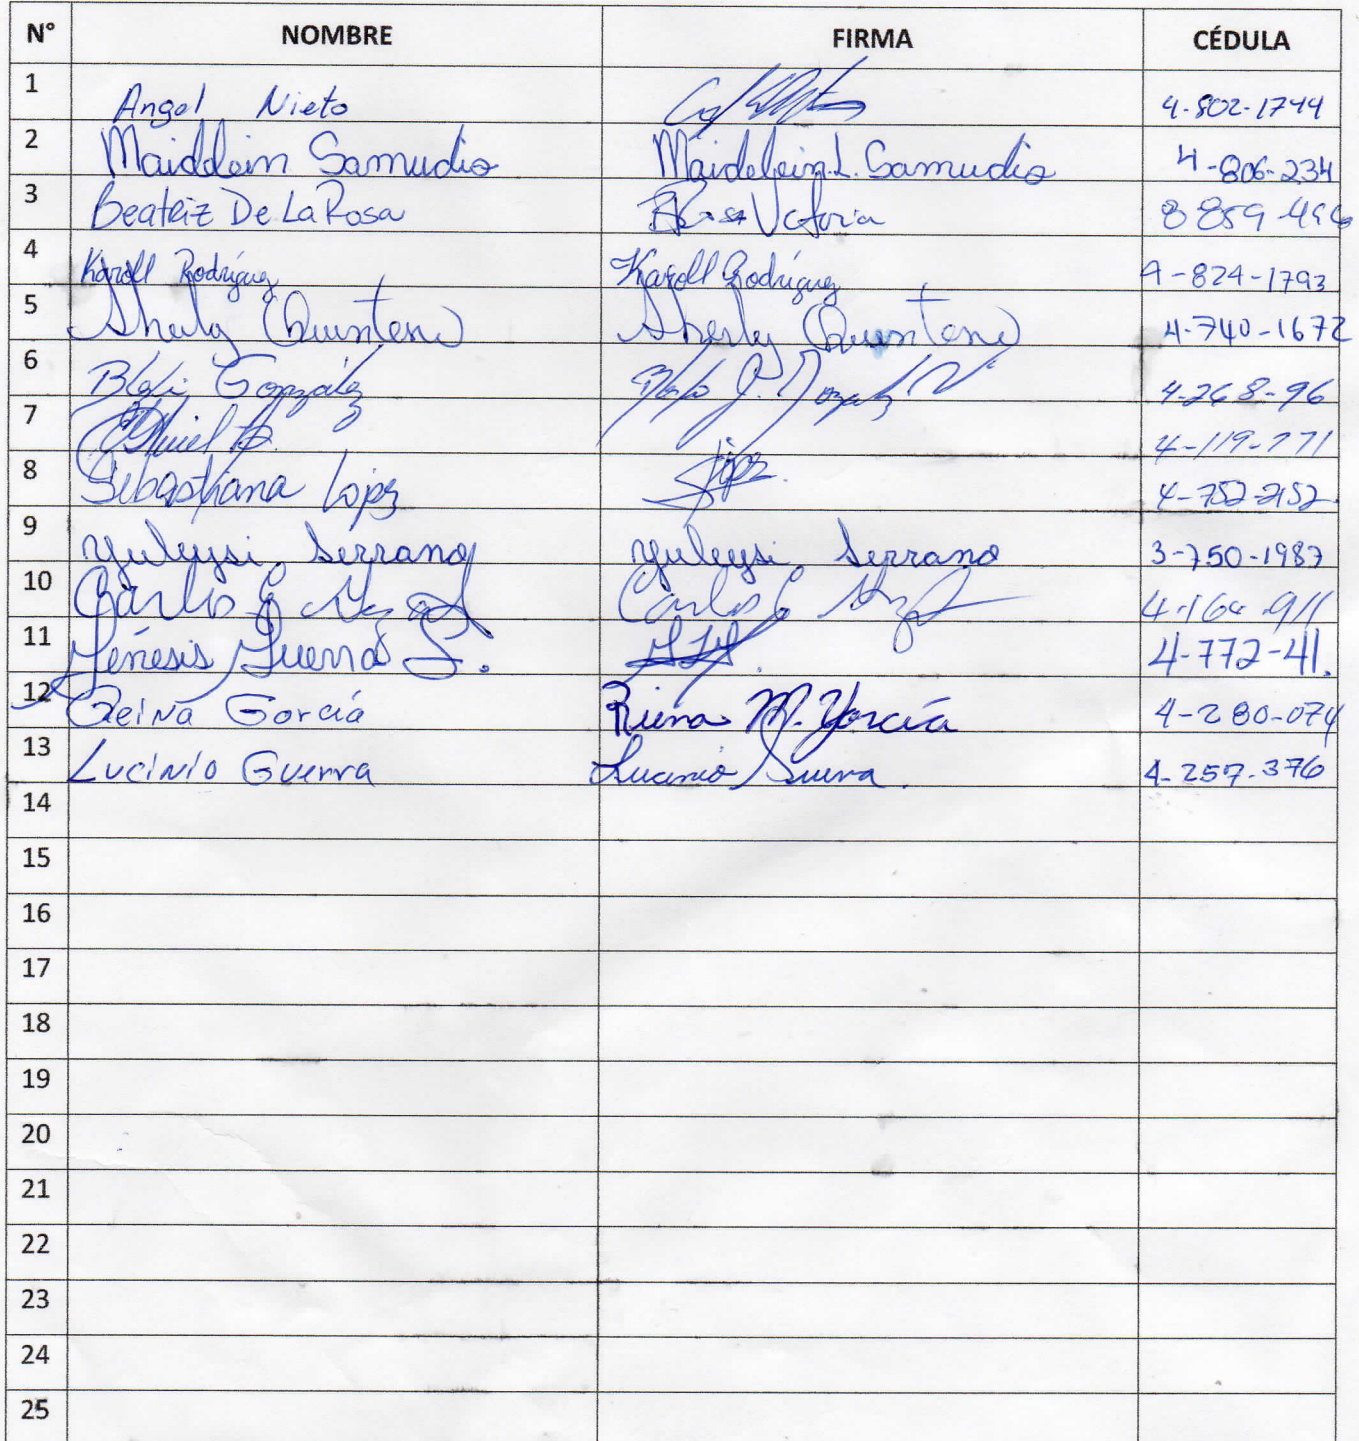 N° NOMBRE FIRMA CÉDULA
1 Angel Nieto 4-802-1744
2 Maiddein Samudio Maideleein L. Samudio 4-806-234
3 Beatriz De La Rosa Victoria 8 859
4 Karoll Rodríguez Karoll Rodríguez 9-824-1793
5 Sherly Quintero Sherly Quintero 4-740-1672
6 González 4-268-96
7 4-119-771
8 Sebastiana López López 4-752-2152
9 Yuleysi Serrano Yuleysi Serrano 3-750-1987
10 Carlos Carlos
11 Génesis Guerra S. 4-772-41.
12 Reina García Riena M. García 4-280-074
13 Lucinio Guerra Lucinio Guerra 4-257-376
14
15
16
17
18
19
20
21
22
23
24
25